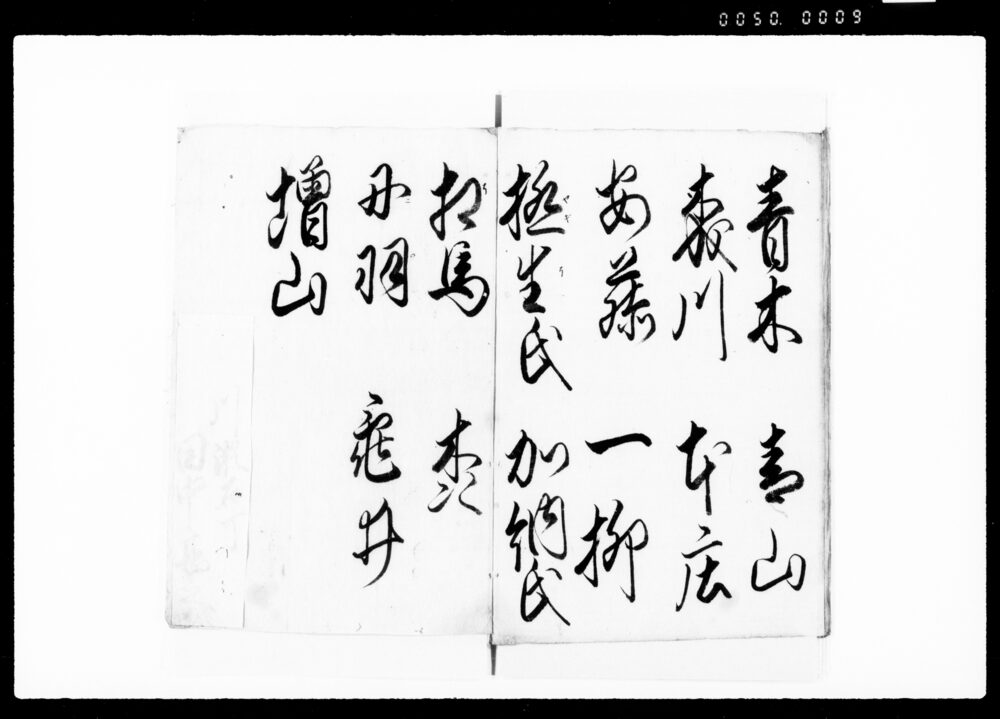 0050.0009
青木　青山
森川　本庄
安藤　一柳
柳生氏　加納氏
相馬　森
丹羽　亀井
増山